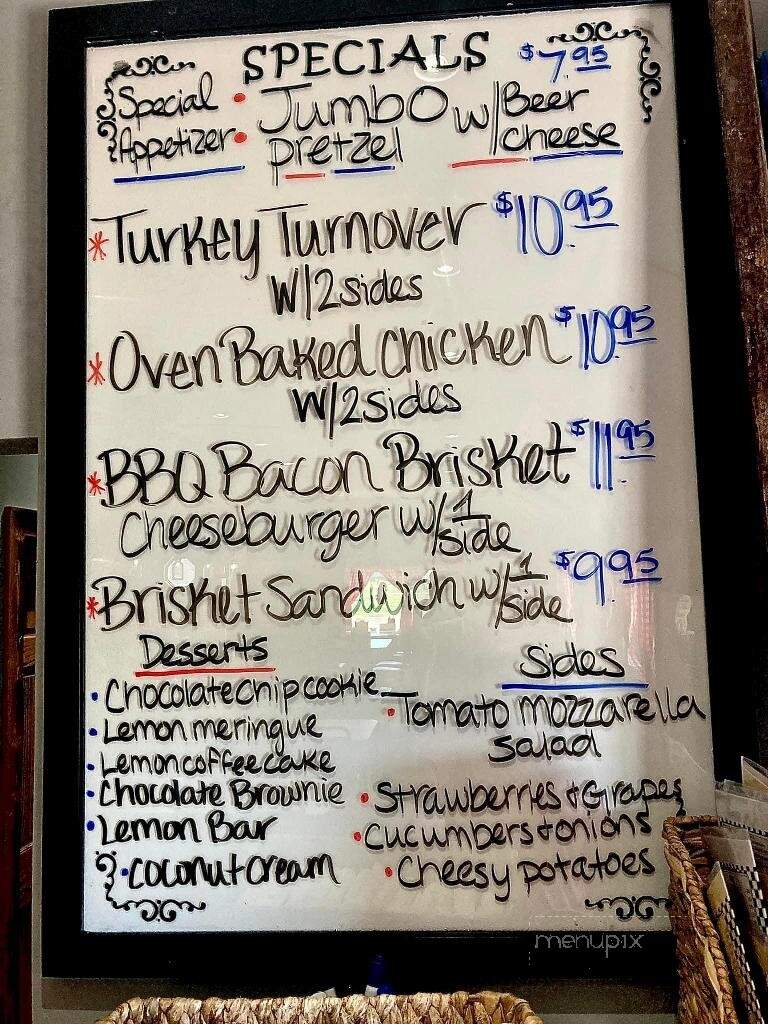 SPECIALS $7.95
Special Appetizer: Jumbo pretzel w/ Beer cheese
* Turkey Turnover $10.95
W/2 sides
* Oven Baked Chicken $10.95
W/2 sides
* BBQ Bacon Brisket $11.95
Cheeseburger w/ 1 side
* Brisket Sandwich w/ 1 side $9.95
Desserts
• Chocolate chip cookie
• Lemon meringue
• Lemon coffee cake
• Chocolate Brownie
• Lemon Bar
• coconut cream
Sides
• Tomato mozzarella
salad
• Strawberries & Grapes
• Cucumbers & onions
• Cheesy potatoes
menupix